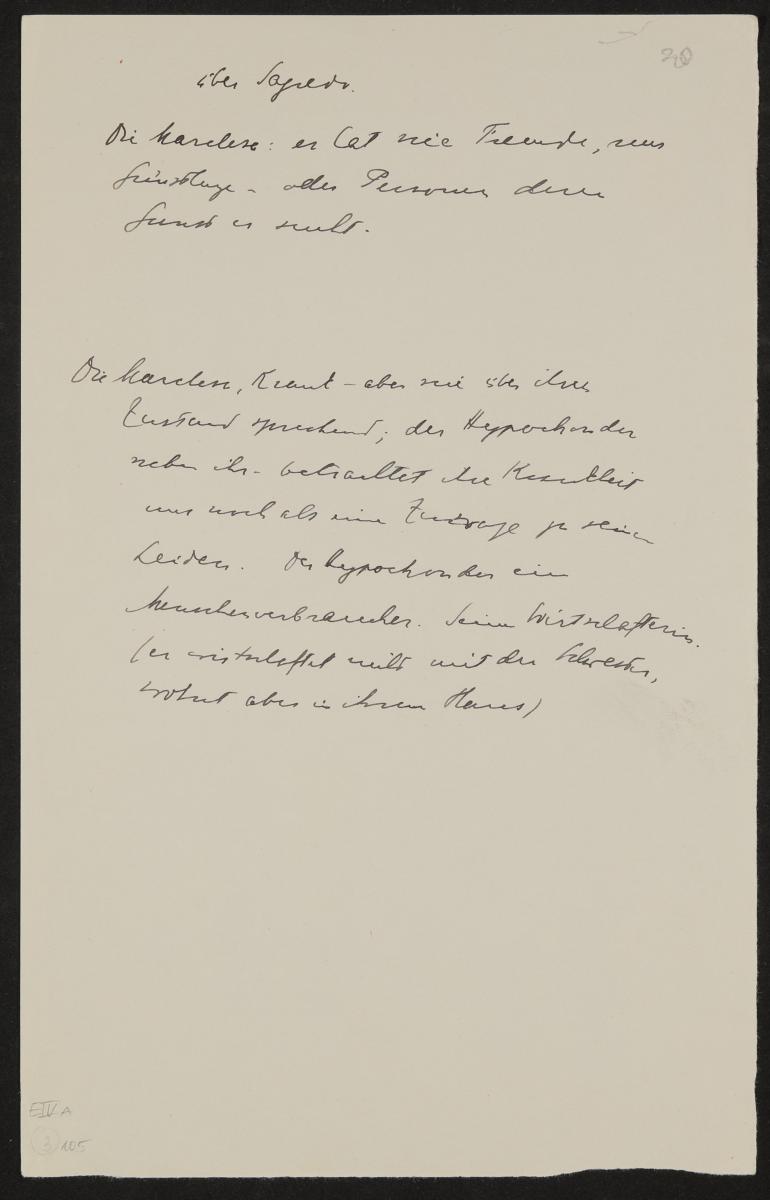 20
über Sagredo.
Die Marchesa: er hat nie Freunde, nur
Günstlinge – oder Personen deren
Gunst er sucht.
Die Marchesa, Krank – aber nie über ihren
Zustand sprechend; der Hypochonder
neben ihr – betrachtet ihre Krankheit
nur noch als eine Zulage zu seinen
Leiden. Der Hypochonder ein
Menschenverbraucher. Seine Wirtschafterin.
(er wirtschaftet nicht mit der Schwester,
wohnt aber in ihrem Haus)
E IV A
3 105